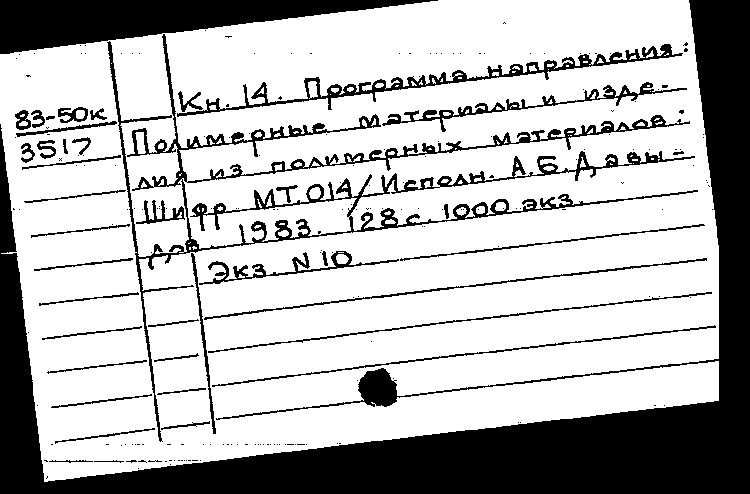 Кн. 14. Программа направления:
83-50к
3517 Полимерные материалы и изде-
лия из полимерных материалов:
Шифр МТ.014/Исполн. А.Б.Давы-
дов. 1983. 128с. 1000 экз.
Экз. N 10